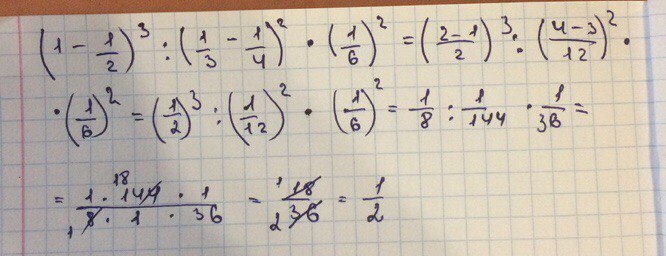 (1 - 1/2)³ : (1/3 - 1/4)² · (1/6)² = ((2-1)/2)³ : ((4-3)/12)² ·
· (1/6)² = (1/2)³ : (1/12)² · (1/6)² = 1/8 : 1/144 · 1/36 =
= (1 · 144 18 · 1)/(8 1 · 1 · 36) = 18 1/36 2 = 1/2